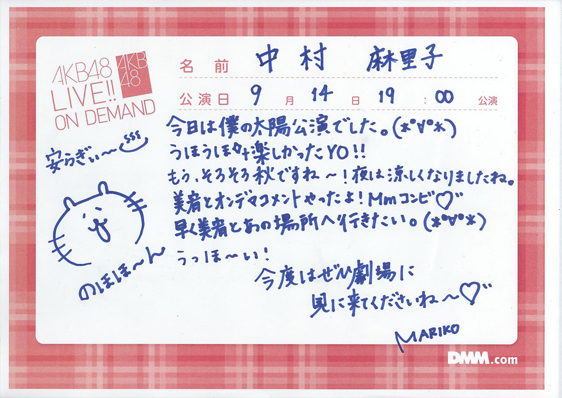 AKB48
LIVE!!
ON DEMAND
AKB
48
名前 中村 麻里子
公演日 9月14日 19:00 公演
安らぎぃ〜
のほほ〜ん
今日は僕の太陽公演でした。(*°∀°*)
うほうほ楽しかったYO!!
もう、そろそろ秋ですね〜!夜は涼しくなりましたね。
美宥とオンデマコメントやったよ!Mmコンビ♡
早く美宥とあの場所へ行きたい。(*°∀°*)
うっほ〜い!
今度はぜひ劇場に
見に来てくださいね〜♡
MARIKO
DMM.com